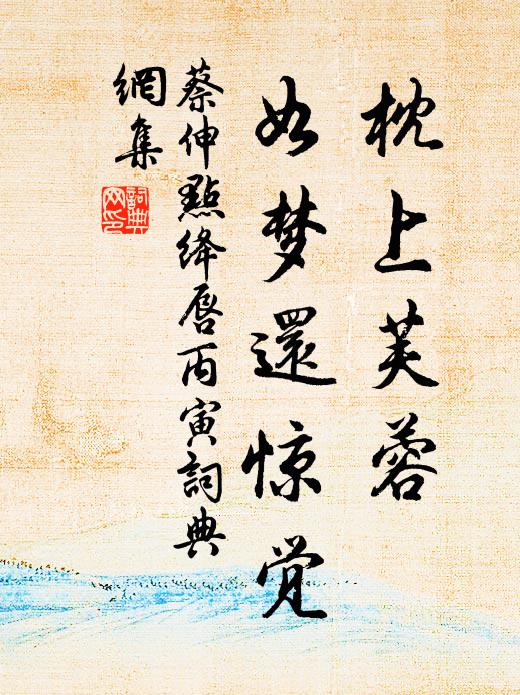 枕上芙蓉
如梦還惊觉
蔡伸點绛唇丙寅詞典
網集
詞典
网印